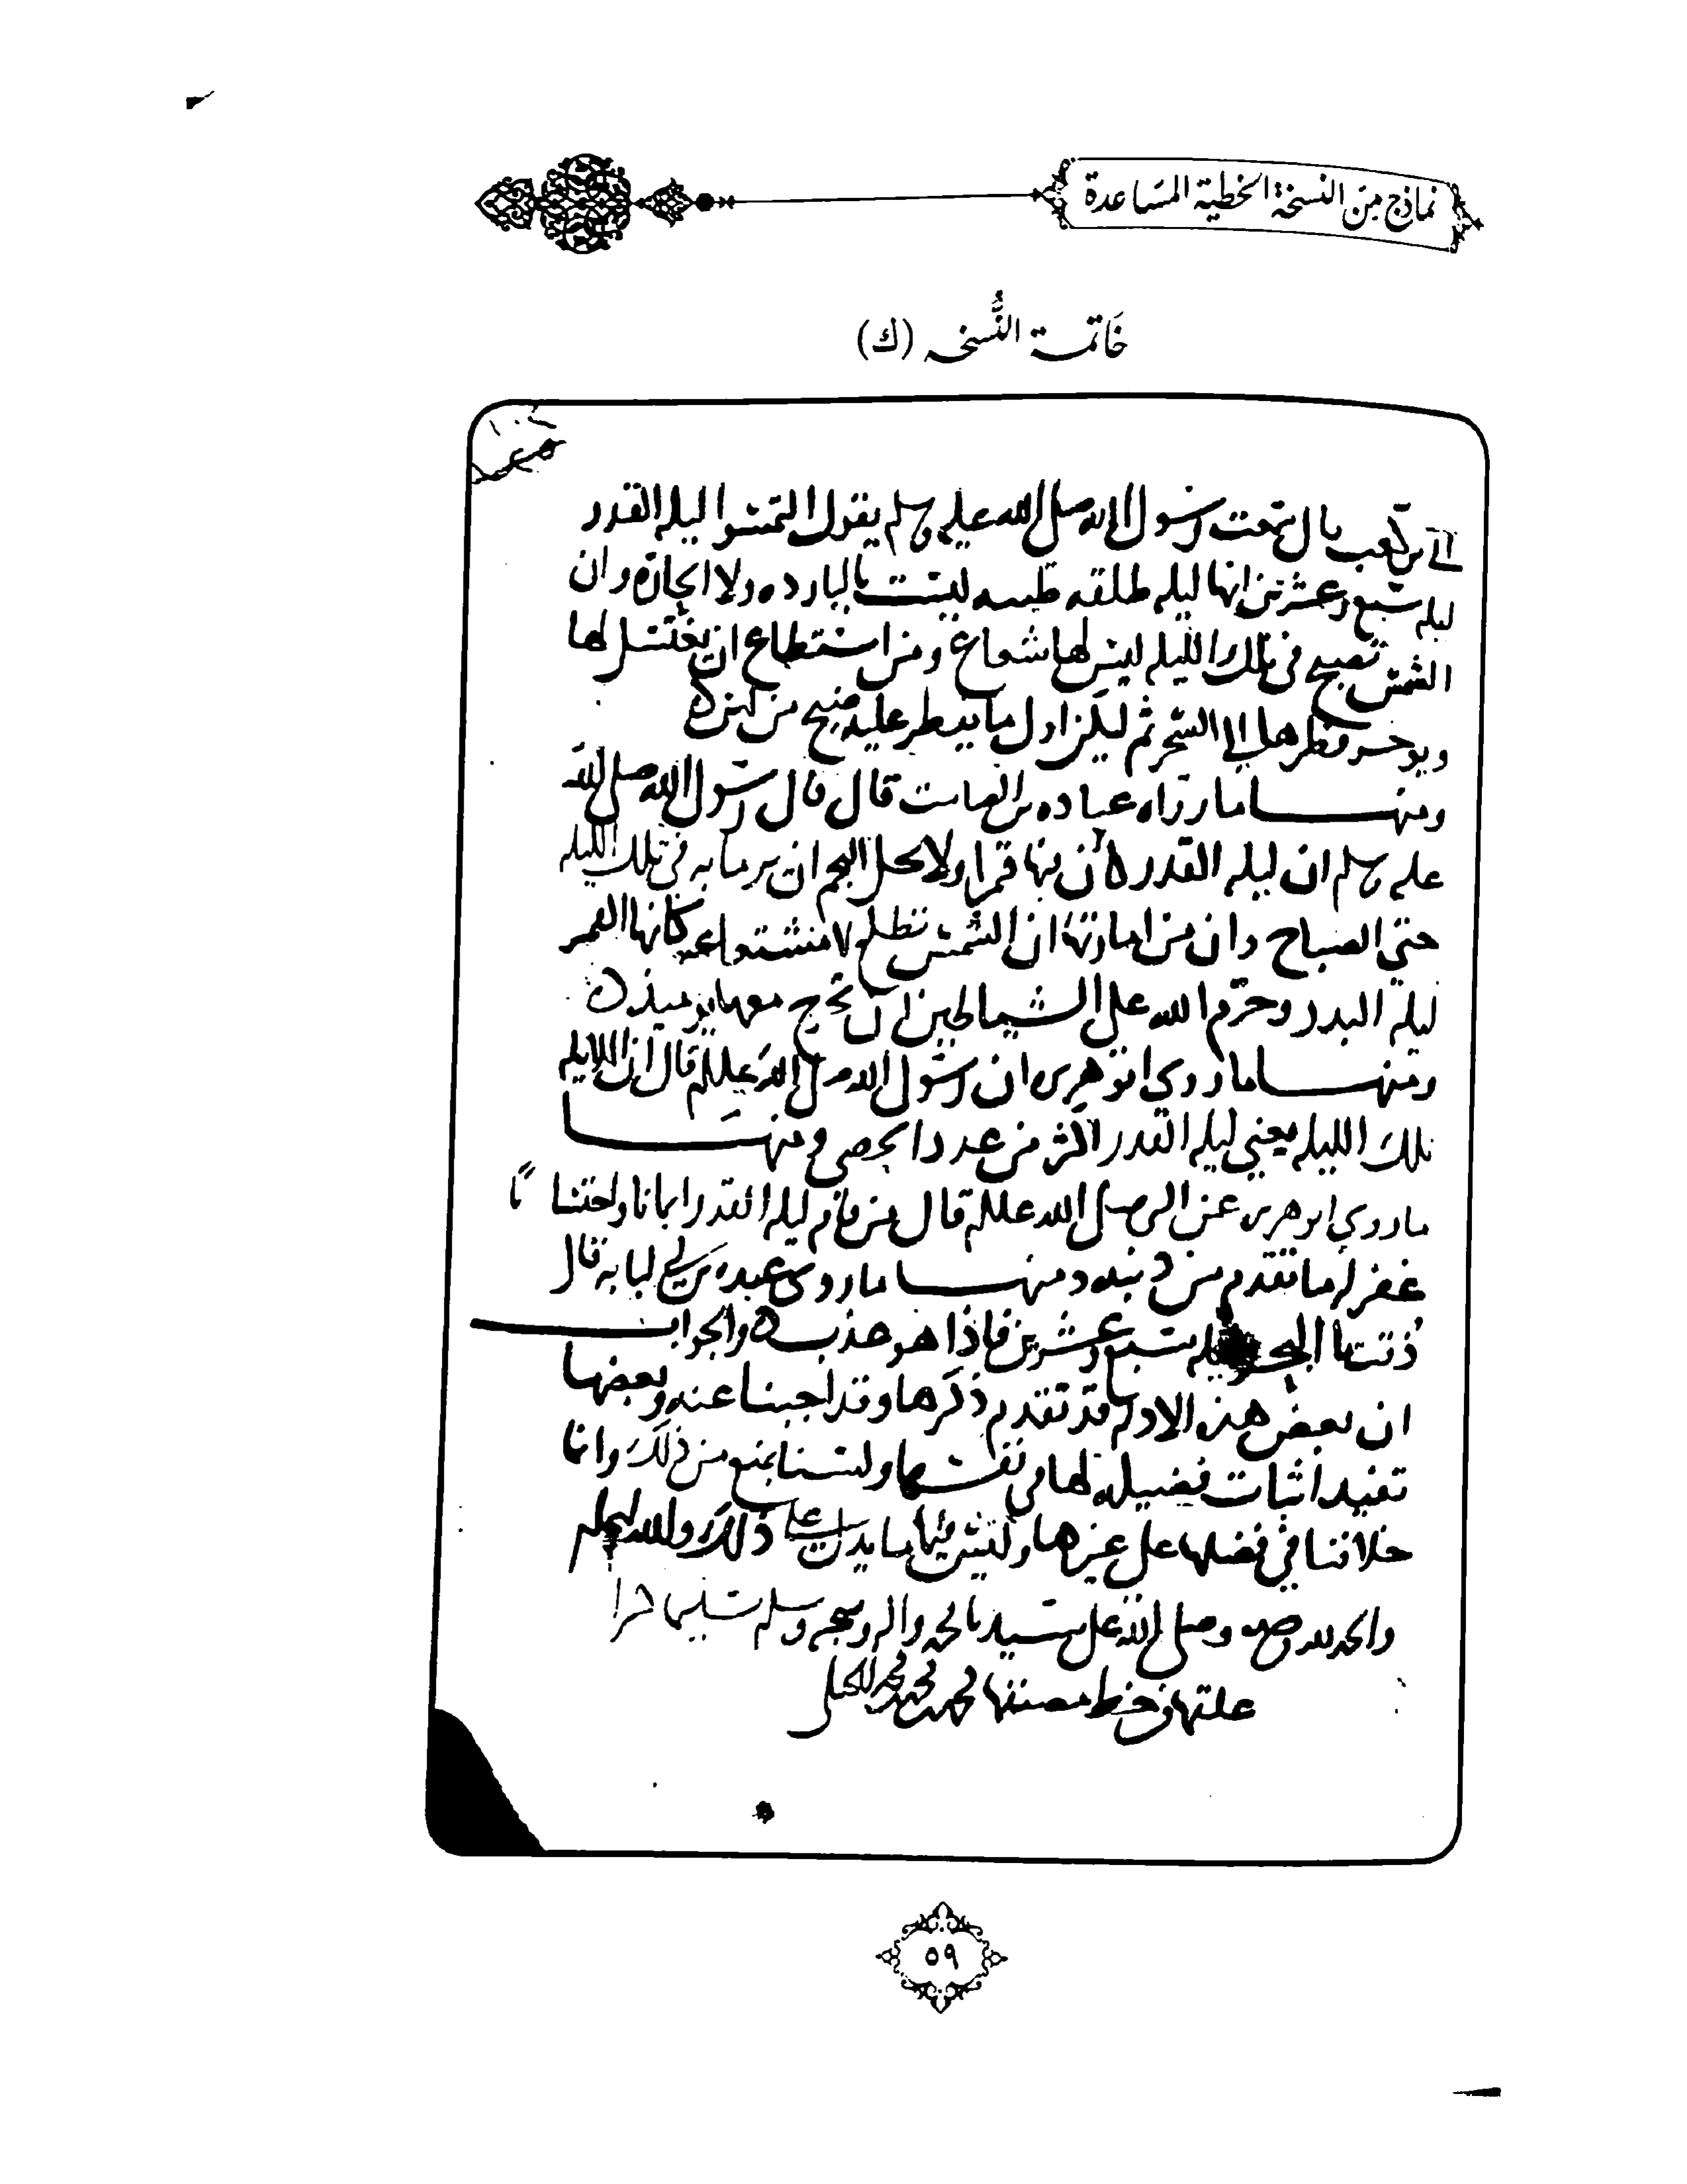 نماذج من النسخة الخطية المساعدة
خاتمة النسخة (ك)
بن كعب قال سمعت رسول الله صلى الله عليه وسلم يقول التمسوا ليله القدر
ليله سبع وعشرين انها ليله طلقه ليست بالبارده ولا الحاره وان
الشمس تصبح في تلك الليله ليس لها شعاع ومن استطاع ان يغتسل لها
ويوخر فطرها الى السحر ثم ليكن اول ما يفطر عليه
ومنها ما رواه عباده بن الصامت قال قال رسول الله صلى الله
عليه وسلم ان ليله القدر كان فيها قمرا ولا يحل لنجم ان يرما به في تلك الليله
حتى الصباح وان من امارتها ان الشمس تطلع لا شعاع كانها القمر
ليله البدر وحرم الله على الشياطين ان تخرج معها يوميذ
ومنها ما روي ابو هريره ان رسول الله صلى الله عليه وسلم قال ان الملايكه
تلك الليله يعني ليله القدر اكثر من عدد الحصى ومنها
ما روي ابو هريره عن النبي صلى الله عليه وسلم قال من قام ليله القدر ايمانا واحتسابا
غفر له ما تقدم من ذنبه ومنها ما روى عبده بن ابي لبابه قال
ذقت ما البحر ليله سبع وعشرين فاذا هو عذب والجواب
ان بعض هذه الادله قد تقدم ذكرها وقد اجبنا عنه وبعضها
تفيد اثبات فضيله لها في نفسها ولسنا نمنع من ذلك وانما
خلافنا في فضلها على غيرها وليس فيها ما يدل على ذلك والله اعلم
والحمد لله وحده وصلى الله على سيدنا محمد واله وصحبه وسلم تسليما
علقها من خط مصنفها محمد محمد محمد
٥٩